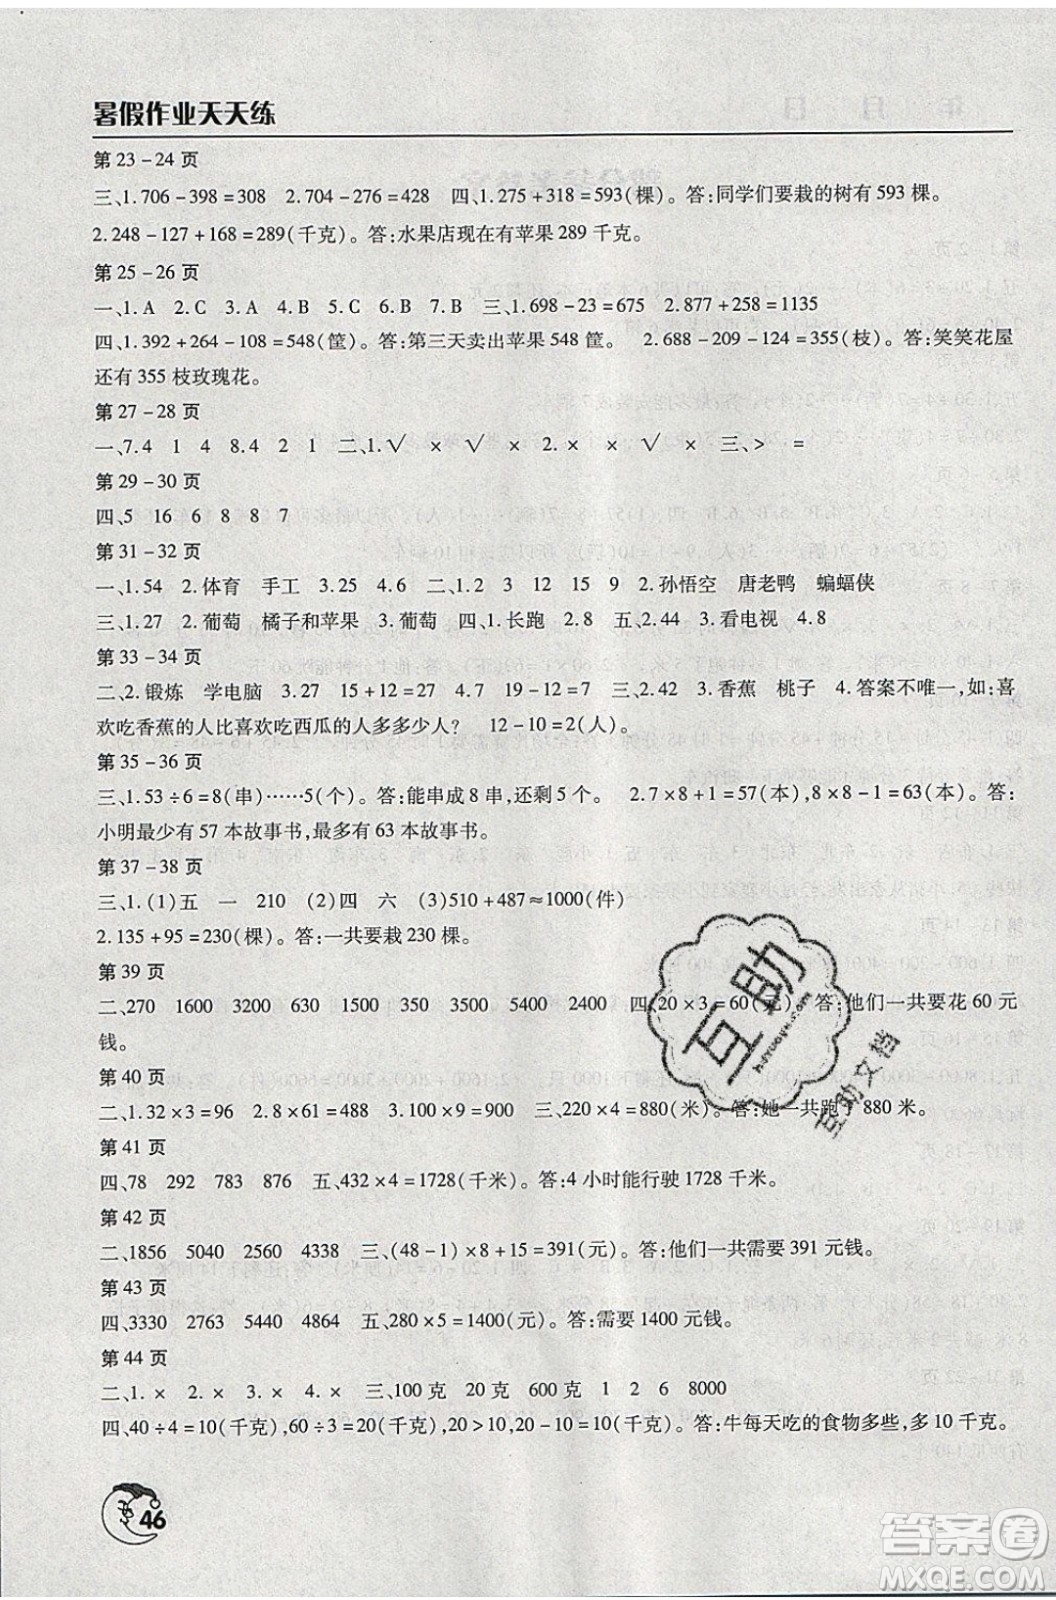 暑假作业天天练
第 23－24 页
三、1.706－398＝308　2.704－276＝428　四、1.275＋318＝593(棵)。答:同学们要栽的树有 593 棵。
2.248－127＋168＝289(千克)。答:水果店现在有苹果 289 千克。
第 25－26 页
一、1.A　2.C　3.A　4.B　5.C　6.A　7.B　8.B　三、1.698－23＝675　2.877＋258＝1135
四、1.392＋264－108＝548(筐)。答:第三天卖出苹果 548 筐。　2.688－209－124＝355(枝)。答:笑笑花屋
还有 355 枝玫瑰花。
第 27－28 页
一、7.4　1　4　8.4　2　1　二、1.√　×　√　×　×　√　×　三、＞　＝
第 29－30 页
四、5　16　6　8　8　7
第 31－32 页
一、1.54　2.体育　手工　3.25　4.6　二、1.2　3　12　15　9　2.孙悟空　唐老鸭　蝙蝠侠
三、1.27　2.葡萄　橘子和苹果　3.葡萄　四、1.长跑　2.8　五、2.44　3.看电视　4.8
第 33－34 页
二、2.锻炼　学电脑　3.27　15＋12＝27　4.7　19－12＝7　三、2.42　3.香蕉　桃子　4.答案不唯一,如:喜
欢吃香蕉的人比喜欢吃西瓜的人多多少人?　12－10＝2(人)。
第 35－36 页
三、1.53÷6＝8(串)……5(个)。答:能串成 8 串,还剩 5 个。　2.7×8＋1＝57(本),8×8－1＝63(本)。答:
小明最少有 57 本故事书,最多有 63 本故事书。
第 37－38 页
三、1.(1)五　一　210　(2)四　六　(3)510＋487≈1000(件)
2.135＋95＝230(棵)。答:一共要栽 230 棵。
第 39 页
二、270　1600　3200　630　1500　350　3500　5400　2400　四、20×3＝60(元)。答:他们一共要花 60 元
钱。
第 40 页
二、1.32×3＝96　2.8×61＝488　3.100×9＝900　三、220×4＝880(米)。答:她一共跑了 880 米。
第 41 页
四、78　292　783　876　五、432×4＝1728(千米)。答:4 小时能行驶 1728 千米。
第 42 页
二、1856　5040　2560　4338　三、(48－1)×8＋15＝391(元)。答:他们一共需要 391 元钱。
第 43 页
四、3330　2763　5440　4864　五、280×5＝1400(元)。答:需要 1400 元钱。
第 44 页
二、1.×　2.×　3.×　4.×　三、100 克　20 克　600 克　1　2　6　8000
四、40÷4＝10(千克),60÷3＝20(千克),20＞10,20－10＝10(千克)。答:牛每天吃的食物多些,多 10 千克。
46
互助
互助文档
答案圈
MXQE.COM